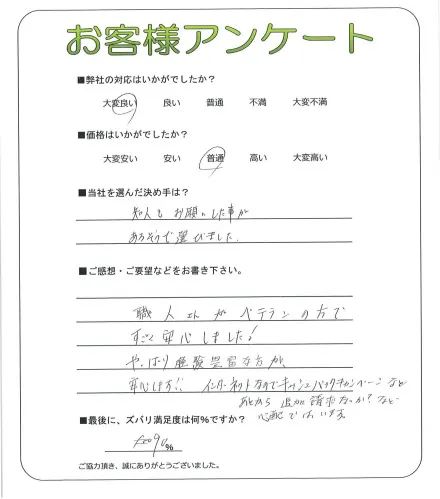 お客様アンケート
■弊社の対応はいかがでしたか?
大変良い 良い 普通 不満 大変不満
■価格はいかがでしたか?
大変安い 安い 普通 高い 大変高い
■当社を選んだ決め手は?
知人もお願いした事が
あるそうで選びました.
■ご感想・ご要望などをお書き下さい。
職人さんがベテランの方で
すごく安心しました!
やっぱり経験豊富な方が、
安心します!! インターネットなのでキャッシュバックキャンペーンなど
あとから追加請求ないか?など
心配ではいます。
■最後に、ズバリ満足度は何%ですか?
%
ご協力頂き、誠にありがとうございました。